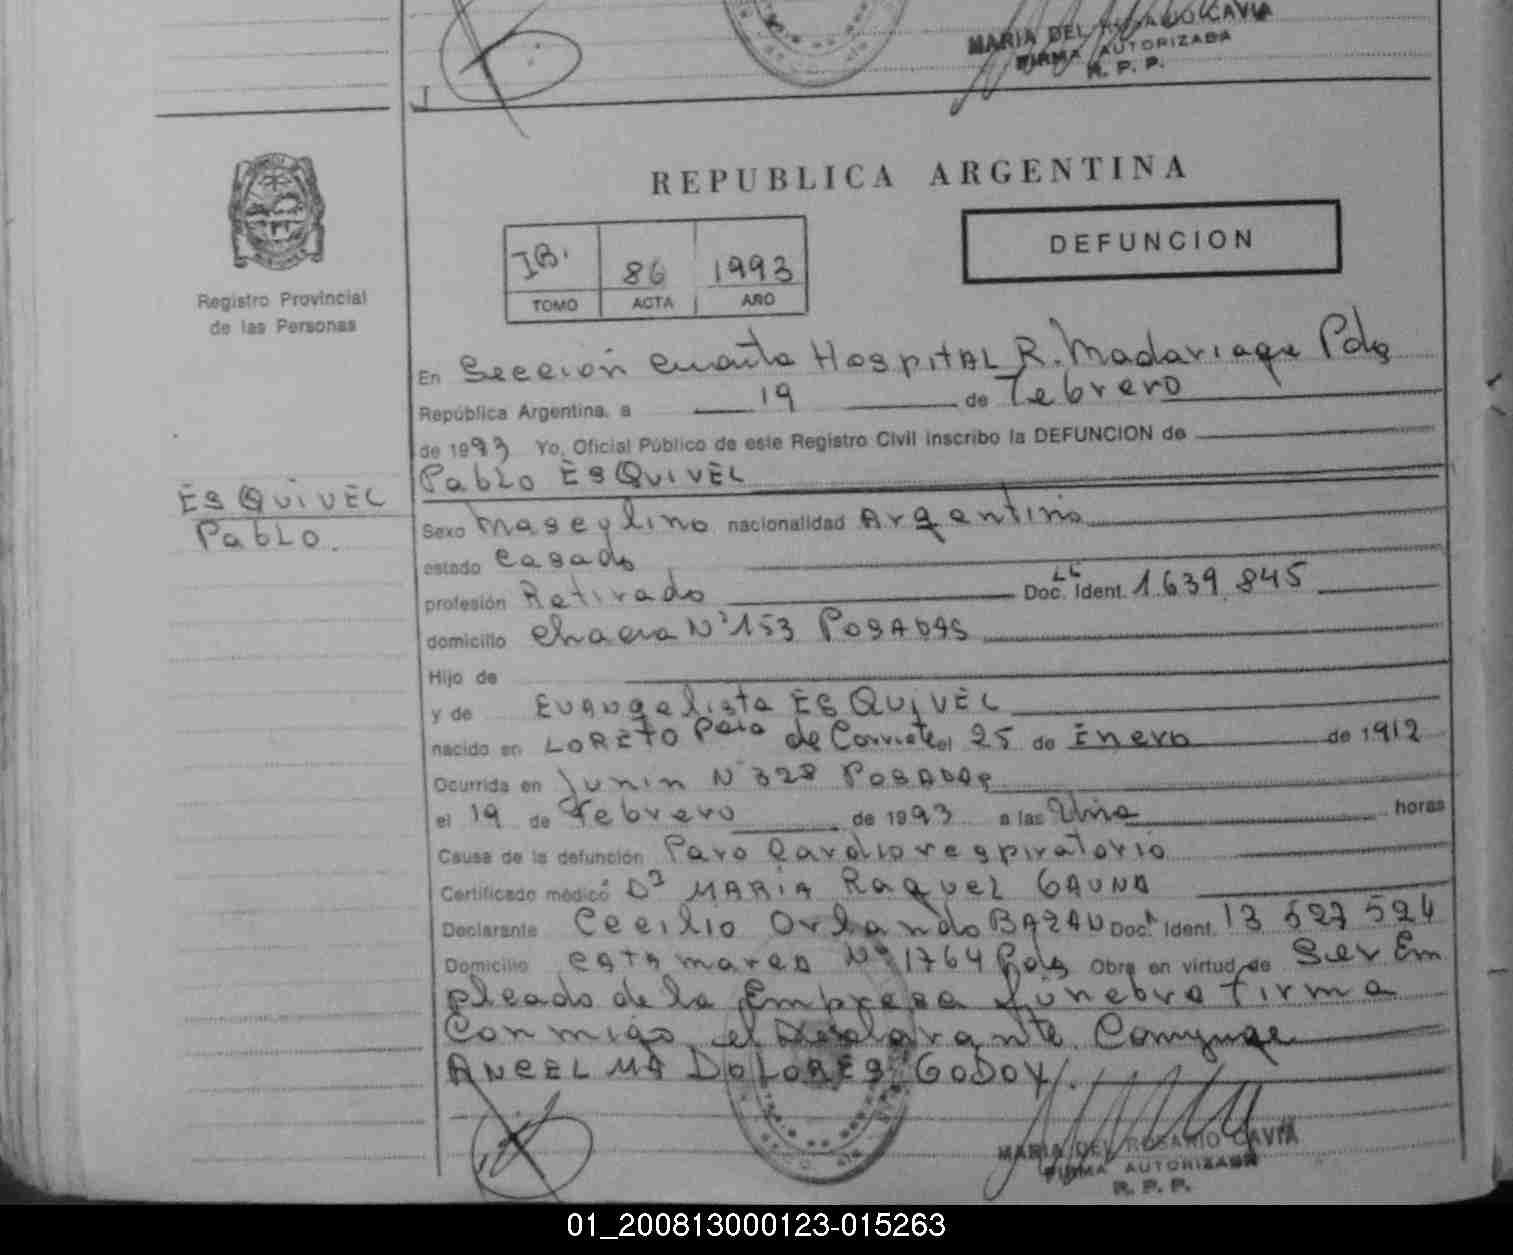 MARIA DEL ROSARIO CAVIA
FIRMA AUTORIZADA
R. P. P.
REPUBLICA ARGENTINA
DEFUNCION
IB. 86 1993
TOMO ACTA AÑO
Registro Provincial
de las Personas
En Sección cuarta Hospital R. Madariaga Pdas
República Argentina, a 19 de Febrero
de 1993 Yo, Oficial Público de este Registro Civil inscribo la DEFUNCION de
Pablo ESQUIVEL
ESQUIVEL
Pablo.
Sexo Masculino nacionalidad Argentino
estado Casado
profesión Retirado Doc. Ident. 1.639.845
domicilio Chacra Nº 153 POSADAS
Hijo de
y de Evangelista ESQUIVEL
nacido en LORETO Pcia de Corrientes el 25 de Enero de 1912
Ocurrida en Junin Nº 328 POSADAS
el 19 de Febrero de 1993 a las Una horas
Causa de la defunción Paro Cardiorespiratorio
Certificado médico Dª MARIA Raquel GAUNA
Declarante Cecilio Orlando BAZAN Doc. Ident. 13 527 524
Domicilio Catamarca Nº 1764 Pdas Obra en virtud de Ser Em
pleado de la Empresa fúnebre firma
Conmigo el Declarante. Conyuge
ANCELMA DOLORES GODOY/.
MARIA DEL ROSARIO CAVIA
FIRMA AUTORIZADA
R. P. P.
01_200813000123-015263